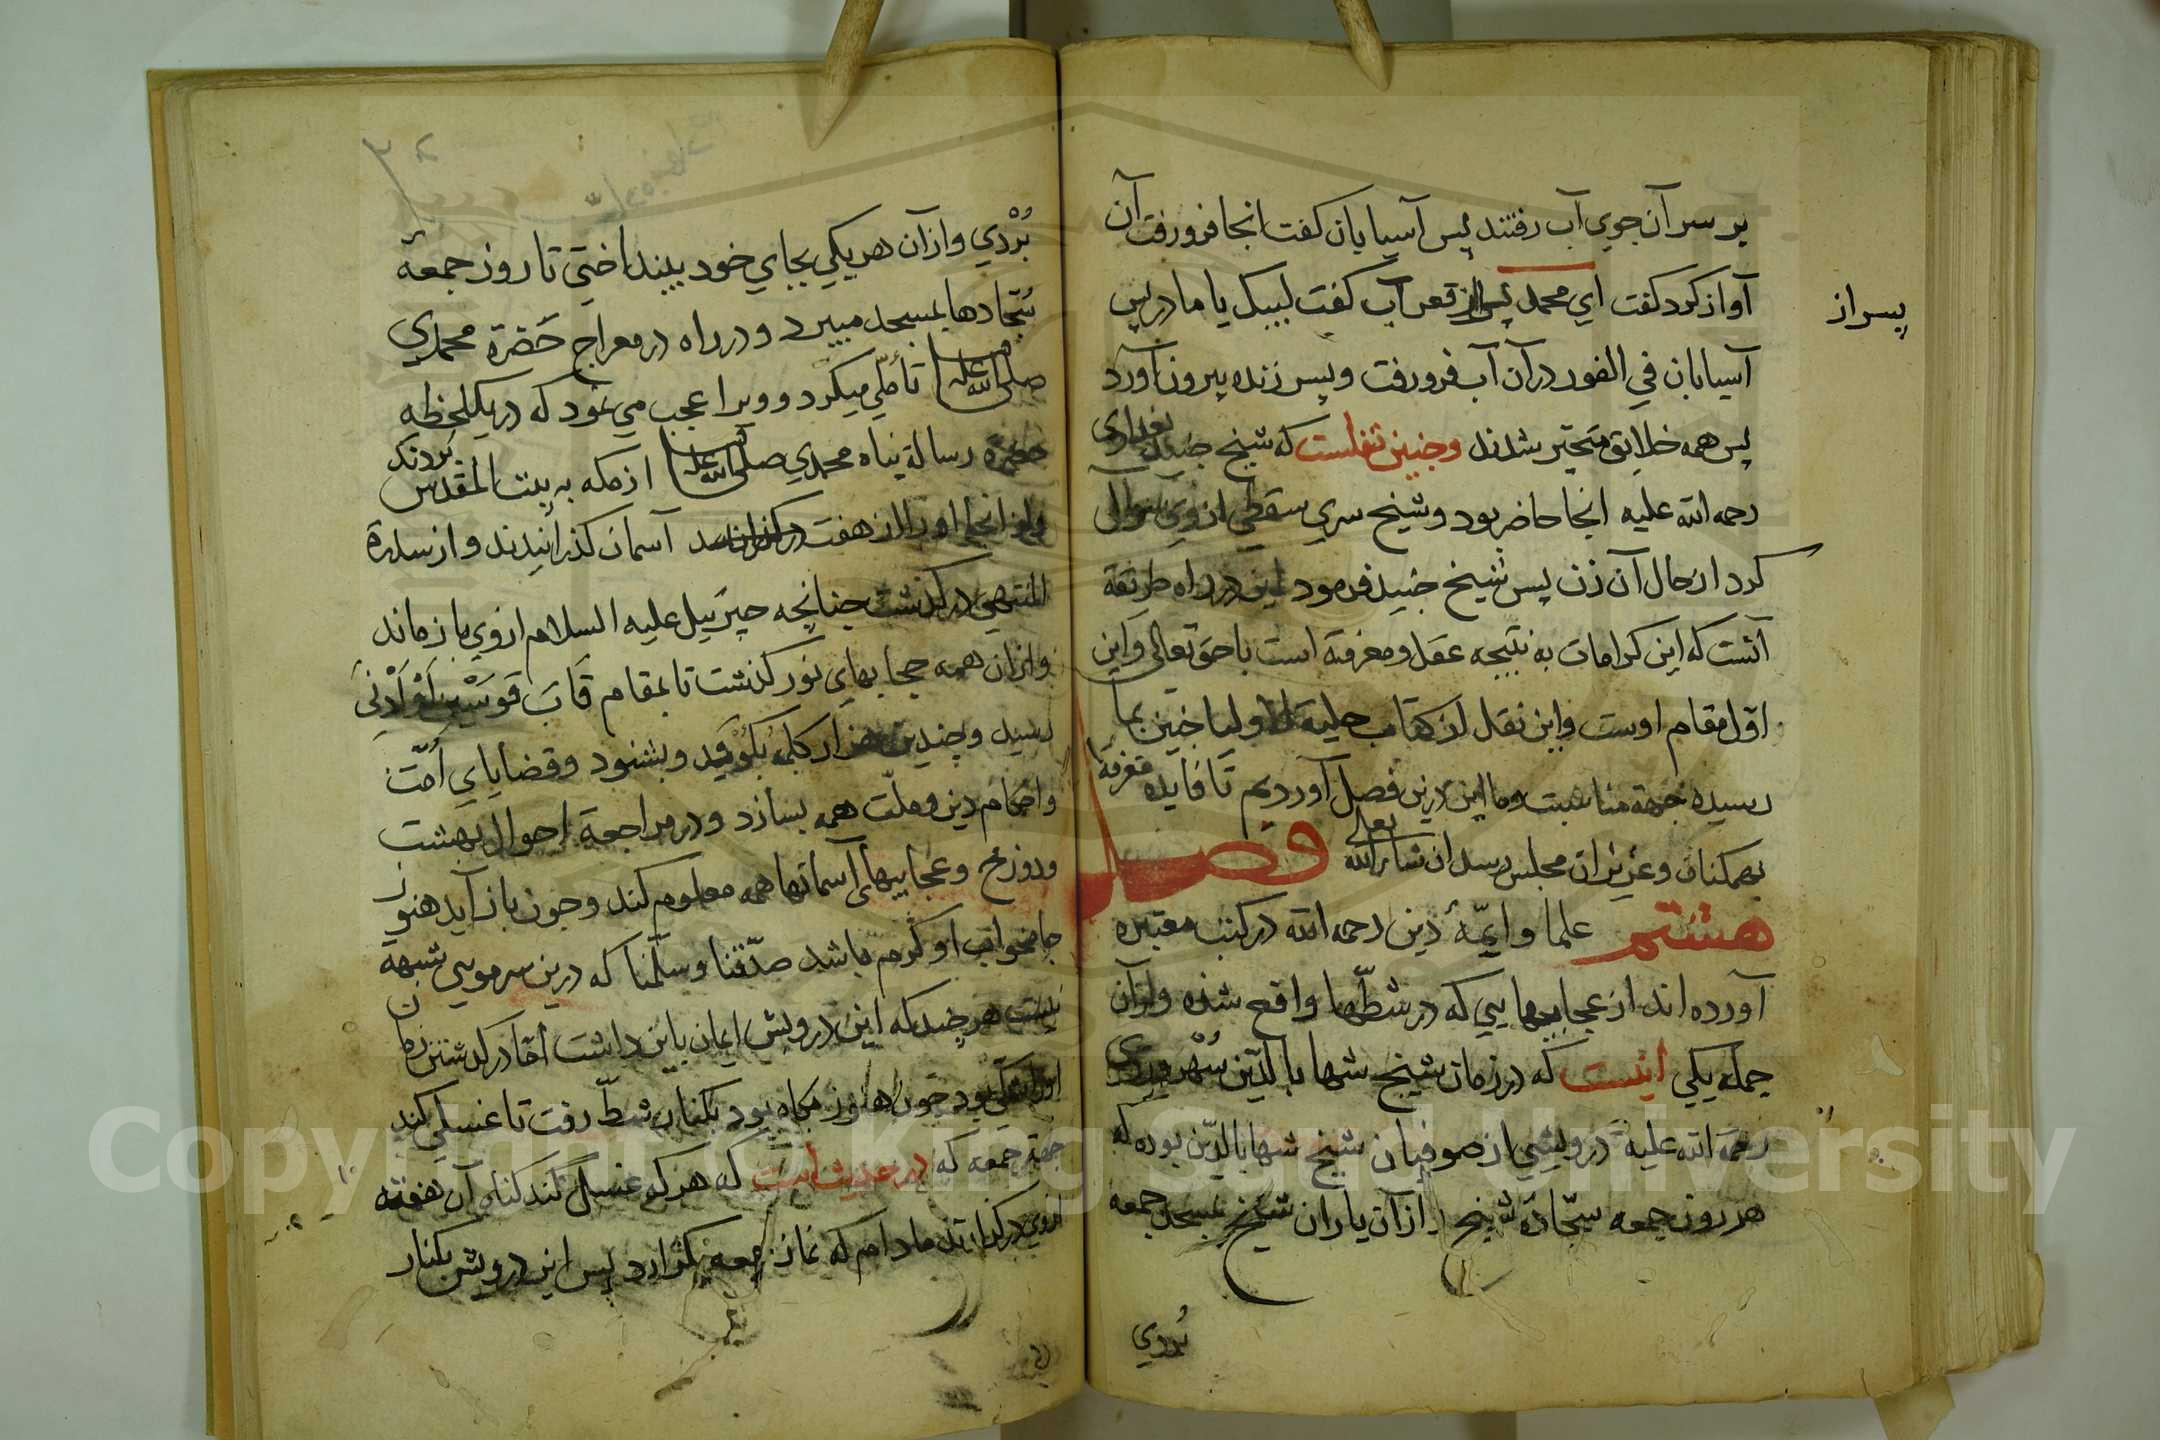 بر سر آن جوي آب رفتند پس آسيابان كفت انجا فرو رفت آن
آواز كرد كفت اي محمد پسر از قعر آب كفت لبيك يا مادر پس
پسر از
آسيابان في الفور در آن آب فرو رفت و پسر زنده بيرون آورد
پس همه خلايق متحيّر شدند و چنين نقلست كه شيخ جنيد بغدادي
رحمه الله عليه انجا حاضر بود و شيخ سري سقطي از وي سوالي
كرد از حال آن زن پس شيخ جنيد فرمود اين در راه طريقة
آنست كه اين كرامات به نتيجه عقل و معرفة است با حق تعالى و اين
اوّل مقام اوست و اين نقل از كتاب حلية الاوليا چنين بما
رسيده جهة مناسبت و ما اين درين فصل آورديم تا فايده معرفة
بهمكنان و عزيزان مجلس رسد ان شاء الله تعالى فصل
هشتم علما و ايمّهٔ دين رحمه الله در كتب معتبره
آورده اند از عجايبهايي كه در شطّها واقع شده و از آن
جمله يكي اينست كه در زمان شيخ شهاب الدّين سُهْروردي
رحمة الله عليه درويشي از صوفيان شيخ شهاب الدّين بوده كه
هر روز جمعه سجّاده شيخ و از آن ياران شيخ بمسجد جمعه
بُردي
بُرْدي و از آن هر يكي بجاي خود بينداختي تا روز جمعهٔ
سُجّادها بمسجد ميبرد و در راه در معراج حَضرة محمدي
صلى الله عليه وسلم تأملّي ميكرد و ويرا عجب مي نمود كه در يكلحظه
حضرة رسالة پناه محمدي صلى الله عليه وسلم از مكه به بيت المقدس بردند
و از انجا او را از هفت آسمان كذرانيدند و از سدرة
المنتهي در كذشت چنانچه جبرئيل عليه السلام از وي باز ماند
و از ان همه حجابهاي نور كذشت تا بمقام قَابَ قوسَيْنِ اَوْ اَدْنىَ
رسيد و چندين هزار كلمه بكويد و بشنود و قضاياي اُمّت
و احكام دين و ملّت همه بسازد و در مراجعة احوال بهشت
و دوزخ و عجايبهاي آسمانها همه معلوم كند و چون باز آيد هنوز
جامخواب او كرم باشد صدّقنا و سلّمنا كه درين سر مويي شبهة
نيست هر چند كه اين درويش ايمان باين داشت امّا در كذشتن زمان
اورا شكي بود چون هنوز پكاه بود بكنار شطّ رفت تا غسلي كند
جهة جمعه كه در حديث است كه هر كه غسل كند كناه آن هفته
از وي در كذارند مادام كه نماز جمعه بكزارد پس اين درويش بكنار